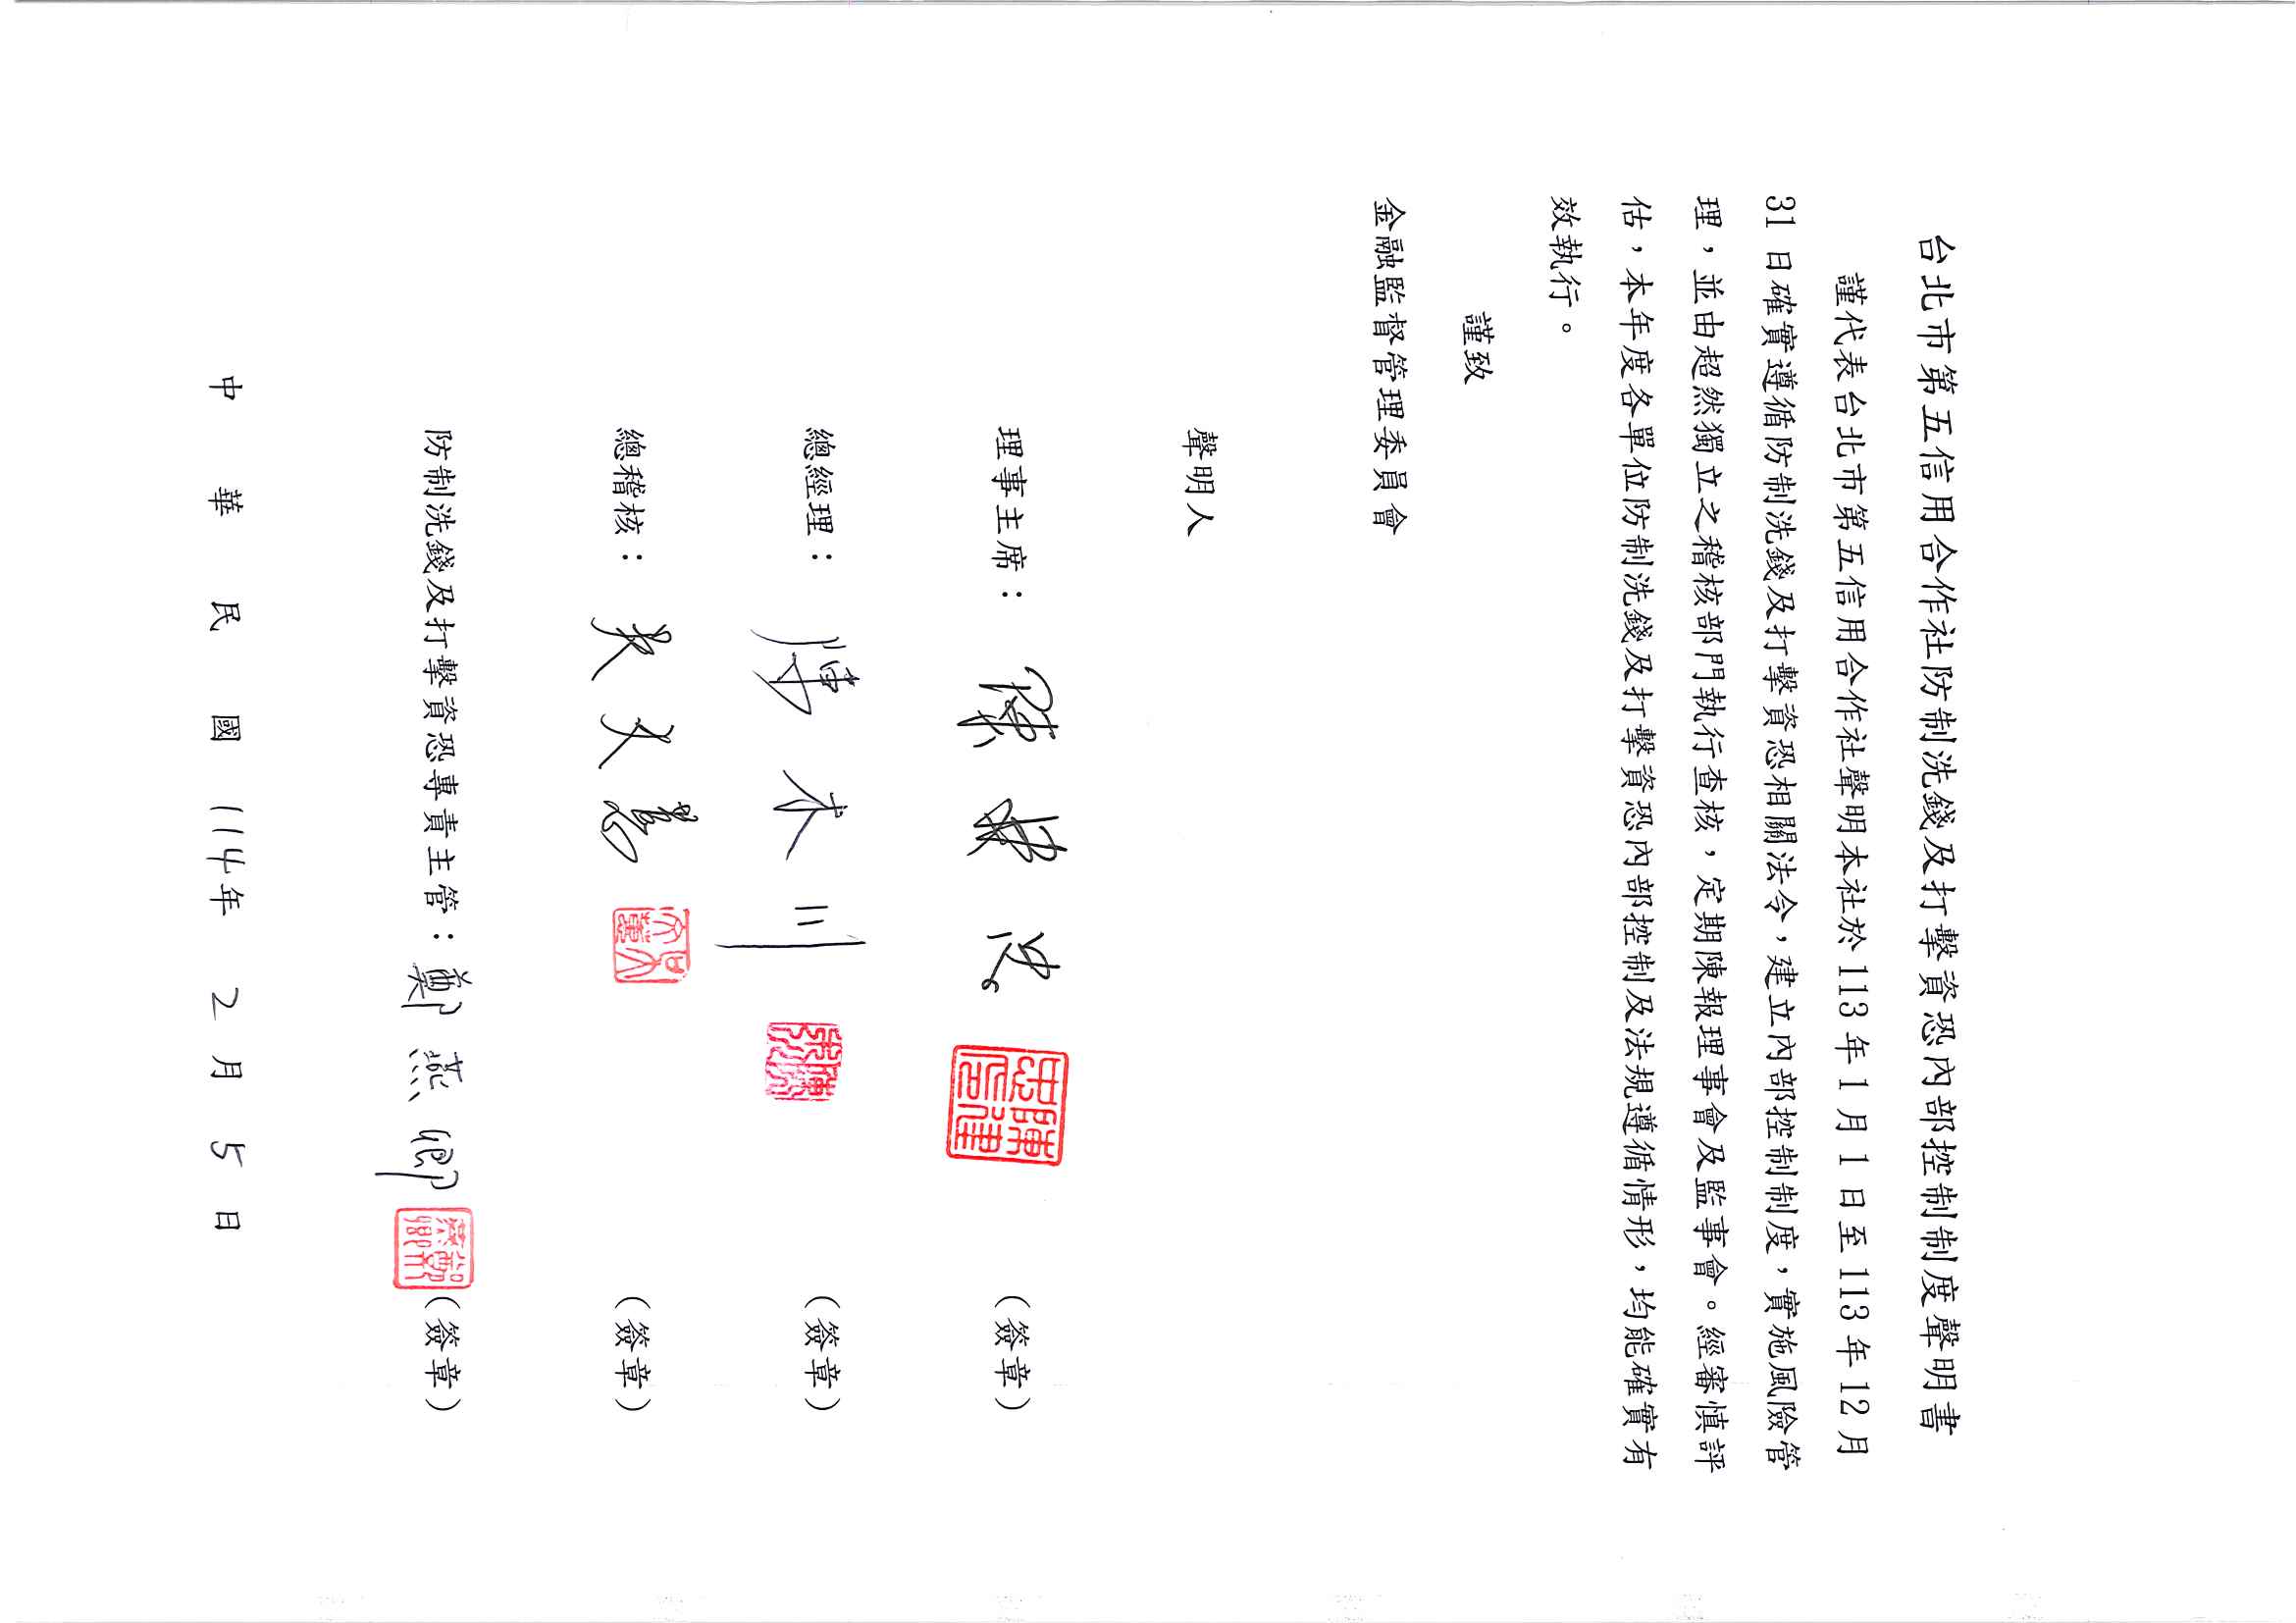 台北市第五信用合作社防制洗錢及打擊資恐內部控制制度聲明書
謹代表台北市第五信用合作社聲明本社於113年1月1日至113年12月
31日確實遵循防制洗錢及打擊資恐相關法令，建立內部控制制度，實施風險管
理，並由超然獨立之稽核部門執行查核，定期陳報理事會及監事會。經審慎評
估，本年度各單位防制洗錢及打擊資恐內部控制及法規遵循情形，均能確實有
效執行。
謹致
金融監督管理委員會
聲明人
理事主席：（簽章）
總經理：（簽章）
總稽核：（簽章）
防制洗錢及打擊資恐專責主管：鄭燕卿（簽章）
中華民國114年2月5日